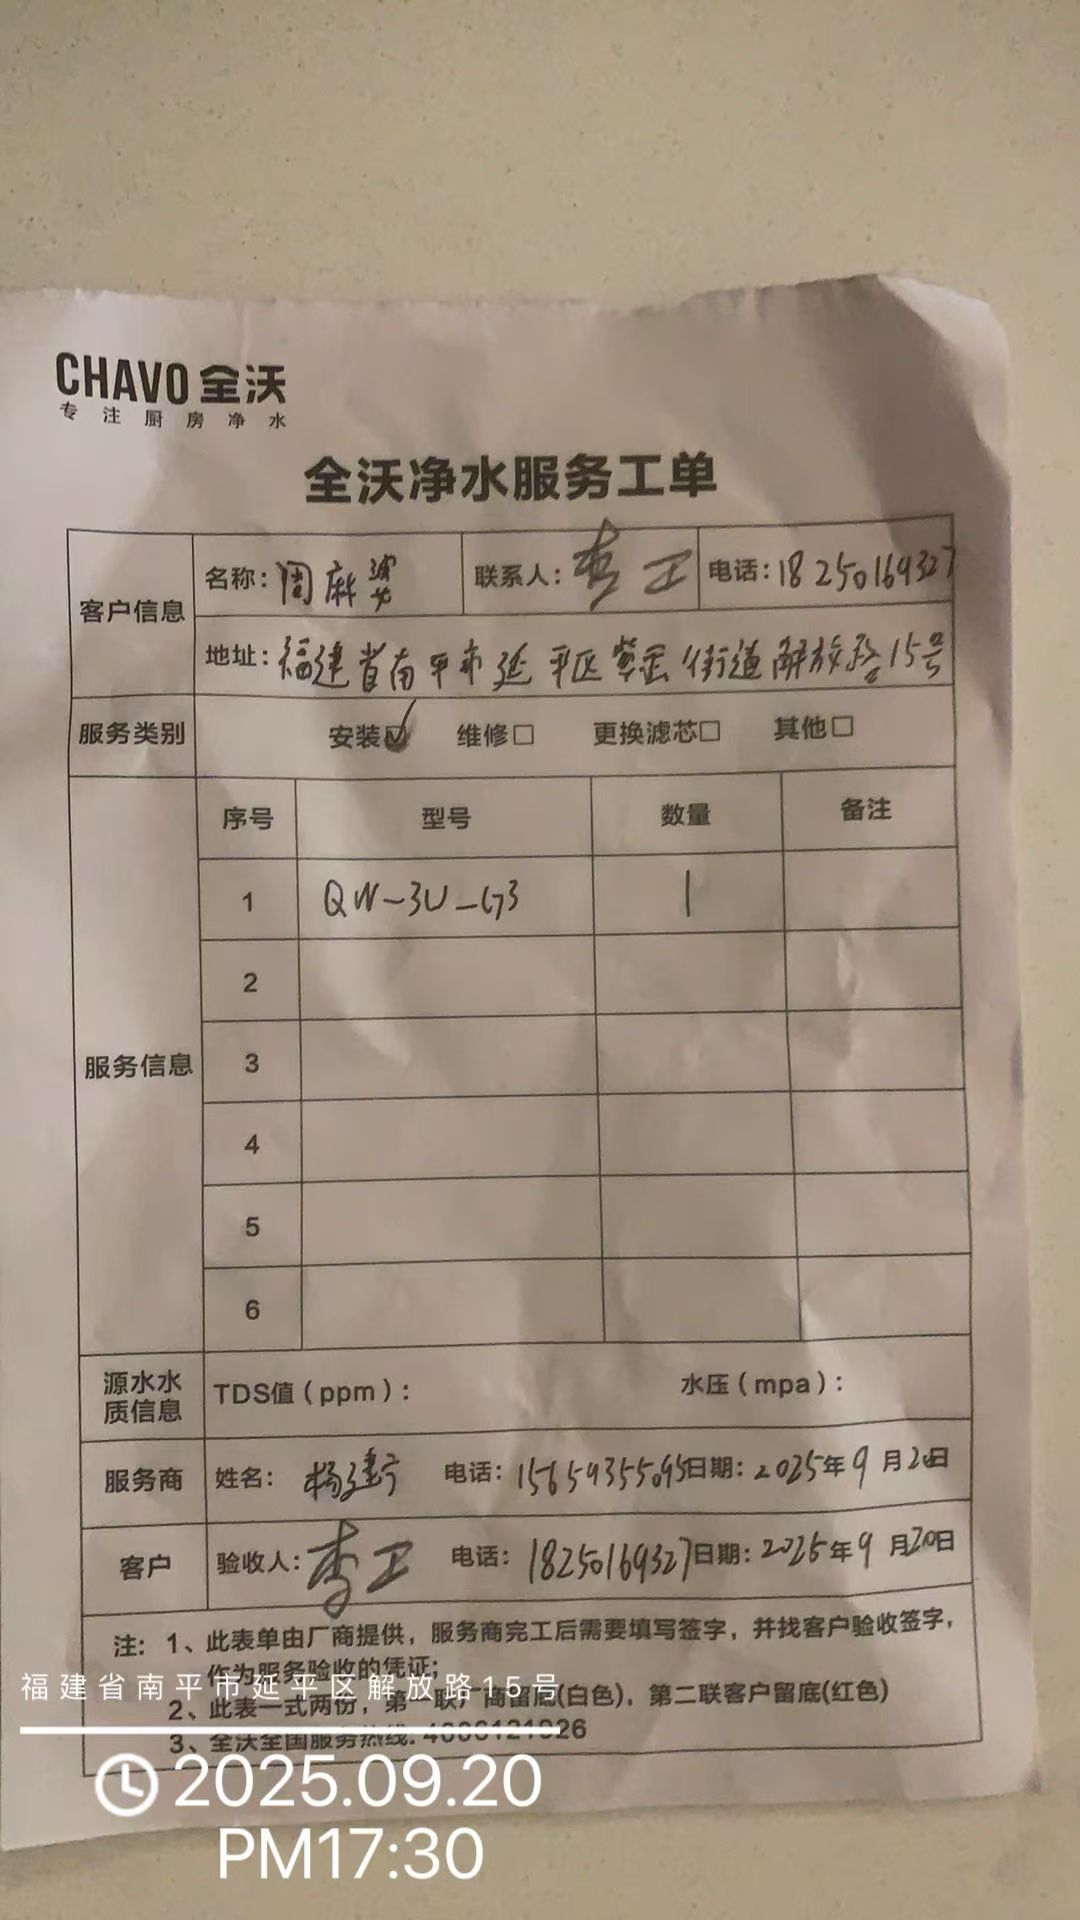 CHAVO 全沃
专注厨房净水
全沃净水服务工单
客户信息
名称：周麻婆
联系人：李工
电话：18250169327
地址：福建省南平市延平区紫云街道解放路15号
服务类别
安装☑ 维修□ 更换滤芯□ 其他□
服务信息
序号 型号 数量 备注
1 QW-3U-G3 1
2
3
4
5
6
源水水质信息
TDS值（ppm）： 水压（mpa）：
服务商 姓名：杨建宁 电话：15659355095 日期：2025年9月20日
客户 验收人：李工 电话：18250169327 日期：2025年9月20日
注：1、此表单由厂商提供，服务商完工后需要填写签字，并找客户验收签字，
作为服务验收的凭证；
2、此表一式两份，第一联厂商留底(白色)，第二联客户留底(红色)
3、全沃全国服务热线：4006121926
福建省南平市延平区解放路15号
2025.09.20
PM17:30